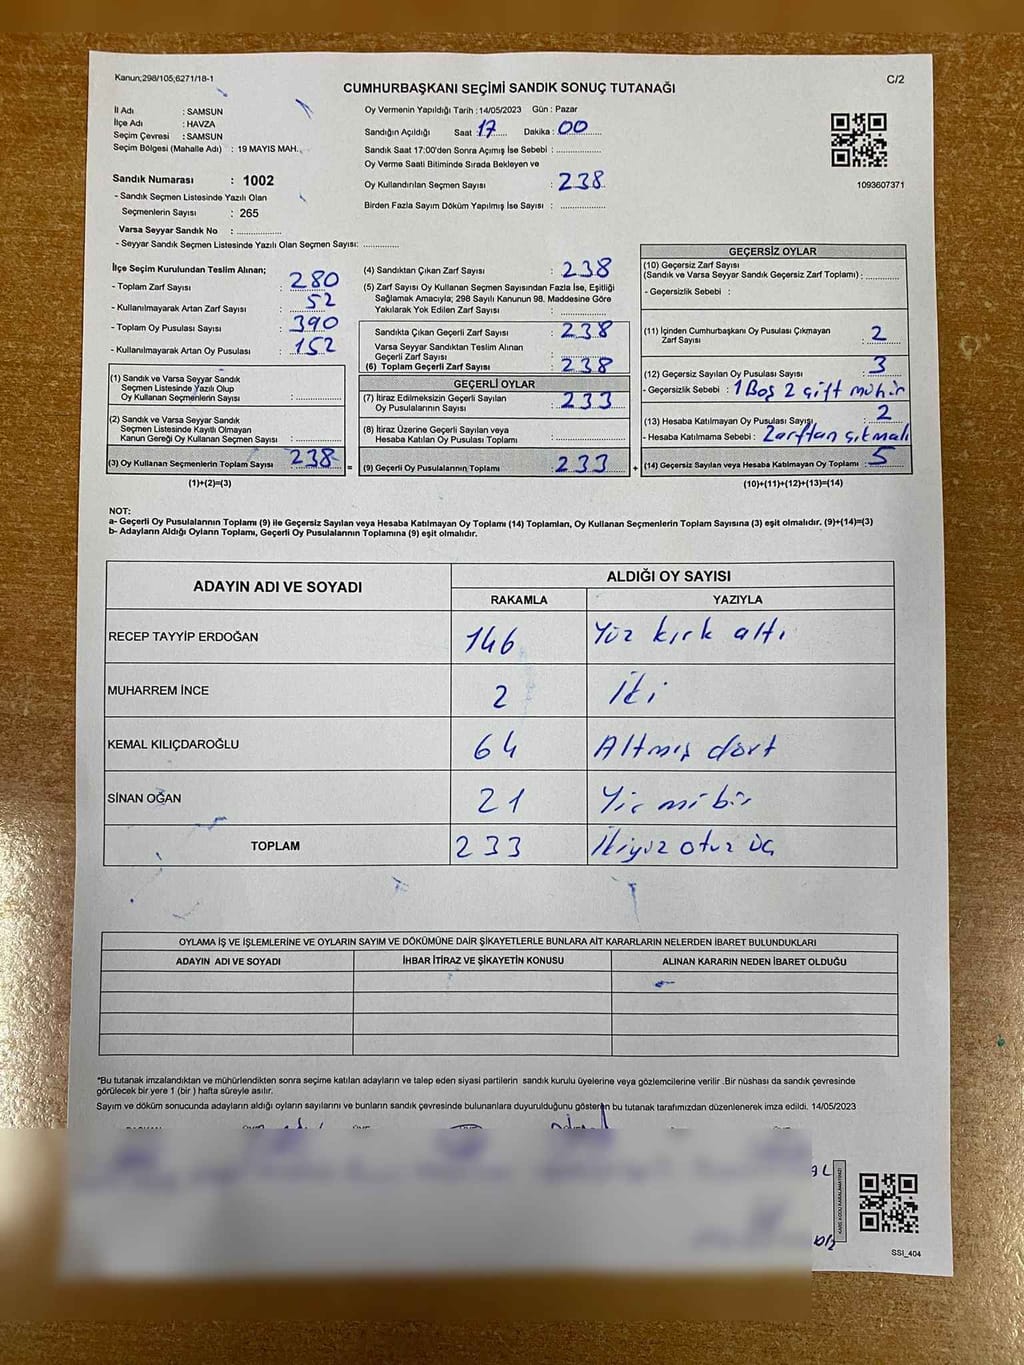 Kanun;298/105;6271/18-1
C/2
CUMHURBAŞKANI SEÇİMİ SANDIK SONUÇ TUTANAĞI
İl Adı : SAMSUN
İlçe Adı : HAVZA
Seçim Çevresi : SAMSUN
Seçim Bölgesi (Mahalle Adı) : 19 MAYIS MAH.
Sandık Numarası : 1002
- Sandık Seçmen Listesinde Yazılı Olan
Seçmenlerin Sayısı : 265
Varsa Seyyar Sandık No : ................
- Seyyar Sandık Seçmen Listesinde Yazılı Olan Seçmen Sayısı: ............
Oy Vermenin Yapıldığı Tarih : 14/05/2023 Gün : Pazar
Sandığın Açıldığı Saat 17 Dakika : 00
Sandık Saat 17:00'den Sonra Açımış İse Sebebi : ................
Oy Verme Saati Bitiminde Sırada Bekleyen ve
Oy Kullandırılan Seçmen Sayısı : 238
Birden Fazla Sayım Döküm Yapılmış İse Sayısı : ................
1093607371
İlçe Seçim Kurulundan Teslim Alınan;
- Toplam Zarf Sayısı : 280
- Kullanılmayarak Artan Zarf Sayısı : 52
- Toplam Oy Pusulası Sayısı : 390
- Kullanılmayarak Artan Oy Pusulası : 152
(1) Sandık ve Varsa Seyyar Sandık
Seçmen Listesinde Yazılı Olup
Oy Kullanan Seçmenlerin Sayısı : ................
(2) Sandık ve Varsa Seyyar Sandık
Seçmen Listesinde Kayıtlı Olmayan
Kanun Gereği Oy Kullanan Seçmen Sayısı : ................
(3) Oy Kullanan Seçmenlerin Toplam Sayısı 238
(1)+(2)=(3)
=
(4) Sandıktan Çıkan Zarf Sayısı : 238
(5) Zarf Sayısı Oy Kullanan Seçmen Sayısından Fazla İse, Eşitliği
Sağlamak Amacıyla; 298 Sayılı Kanunun 98. Maddesine Göre
Yakılarak Yok Edilen Zarf Sayısı : ................
Sandıkta Çıkan Geçerli Zarf Sayısı : 238
Varsa Seyyar Sandıktan Teslim Alınan
Geçerli Zarf Sayısı : ................
(6) Toplam Geçerli Zarf Sayısı : 238
GEÇERLİ OYLAR
(7) İtiraz Edilmeksizin Geçerli Sayılan
Oy Pusulalarının Sayısı : 233
(8) İtiraz Üzerine Geçerli Sayılan veya
Hesaba Katılan Oy Pusulası Toplamı : ................
(9) Geçerli Oy Pusulalarının Toplamı : 233
+
GEÇERSİZ OYLAR
(10) Geçersiz Zarf Sayısı
(Sandık ve Varsa Seyyar Sandık Geçersiz Zarf Toplamı) : ............
- Geçersizlik Sebebi :
(11) İçinden Cumhurbaşkanı Oy Pusulası Çıkmayan
Zarf Sayısı : 2
(12) Geçersiz Sayılan Oy Pusulası Sayısı : 3
- Geçersizlik Sebebi : 1 Boş 2 çift mühür
(13) Hesaba Katılmayan Oy Pusulası Sayısı : 2
- Hesaba Katılmama Sebebi : Zarftan çıkmalı
(14) Geçersiz Sayılan veya Hesaba Katılmayan Oy Toplamı : 5
(10)+(11)+(12)+(13)=(14)
NOT:
a- Geçerli Oy Pusulalarının Toplamı (9) ile Geçersiz Sayılan veya Hesaba Katılmayan Oy Toplamı (14) Toplamları, Oy Kullanan Seçmenlerin Toplam Sayısına (3) eşit olmalıdır. (9)+(14)=(3)
b- Adayların Aldığı Oyların Toplamı, Geçerli Oy Pusulalarının Toplamına (9) eşit olmalıdır.
ADAYIN ADI VE SOYADI
ALDIĞI OY SAYISI
RAKAMLA YAZIYLA
RECEP TAYYİP ERDOĞAN 146 Yüz kırk altı
MUHARREM İNCE 2 İki
KEMAL KILIÇDAROĞLU 64 Altmış dört
SİNAN OĞAN 21 Yirmi bir
TOPLAM 233 İkiyüz otuz üç
OYLAMA İŞ VE İŞLEMLERİNE VE OYLARIN SAYIM VE DÖKÜMÜNE DAİR ŞİKAYETLERLE BUNLARA AİT KARARLARIN NELERDEN İBARET BULUNDUKLARI
ADAYIN ADI VE SOYADI İHBAR İTİRAZ VE ŞİKAYETİN KONUSU ALINAN KARARIN NEDEN İBARET OLDUĞU
*Bu tutanak imzalandıktan ve mühürlendikten sonra seçime katılan adayların ve talep eden siyasi partilerin sandık kurulu üyelerine veya gözlemcilerine verilir .Bir nüshası da sandık çevresinde
görülecek bir yere 1 (bir ) hafta süreyle asılır.
Sayım ve döküm sonucunda adayların aldığı oyların sayılarını ve bunların sandık çevresinde bulunanlara duyurulduğunu gösteren bu tutanak tarafımızdan düzenlenerek imza edildi. 14/05/2023
SSI_404